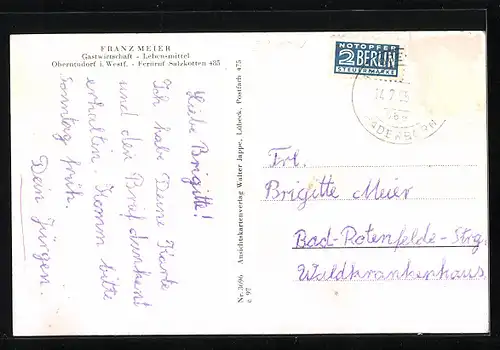 FRANZ MEIER
Gastwirtschaft - Lebensmittel
Oberntudorf i. Westf. - Fernruf Salzkotten 485
Liebe Brigitte!
Ich habe Deine Karte
und den Brief dankend
erhalten. Komm bitte
Sonntag früh.
Dein Jürgen.
Nr. 3696 Ansichtskartenverlag Walter Jappe, Lübeck, Postfach 475
c 97
NOTOPFER
2 BERLIN
STEUERMARKE
14.7.55
PADERBORN
Frl.
Brigitte Meier
Bad-Rotenfelde-Strg.
Waldkrankenhaus